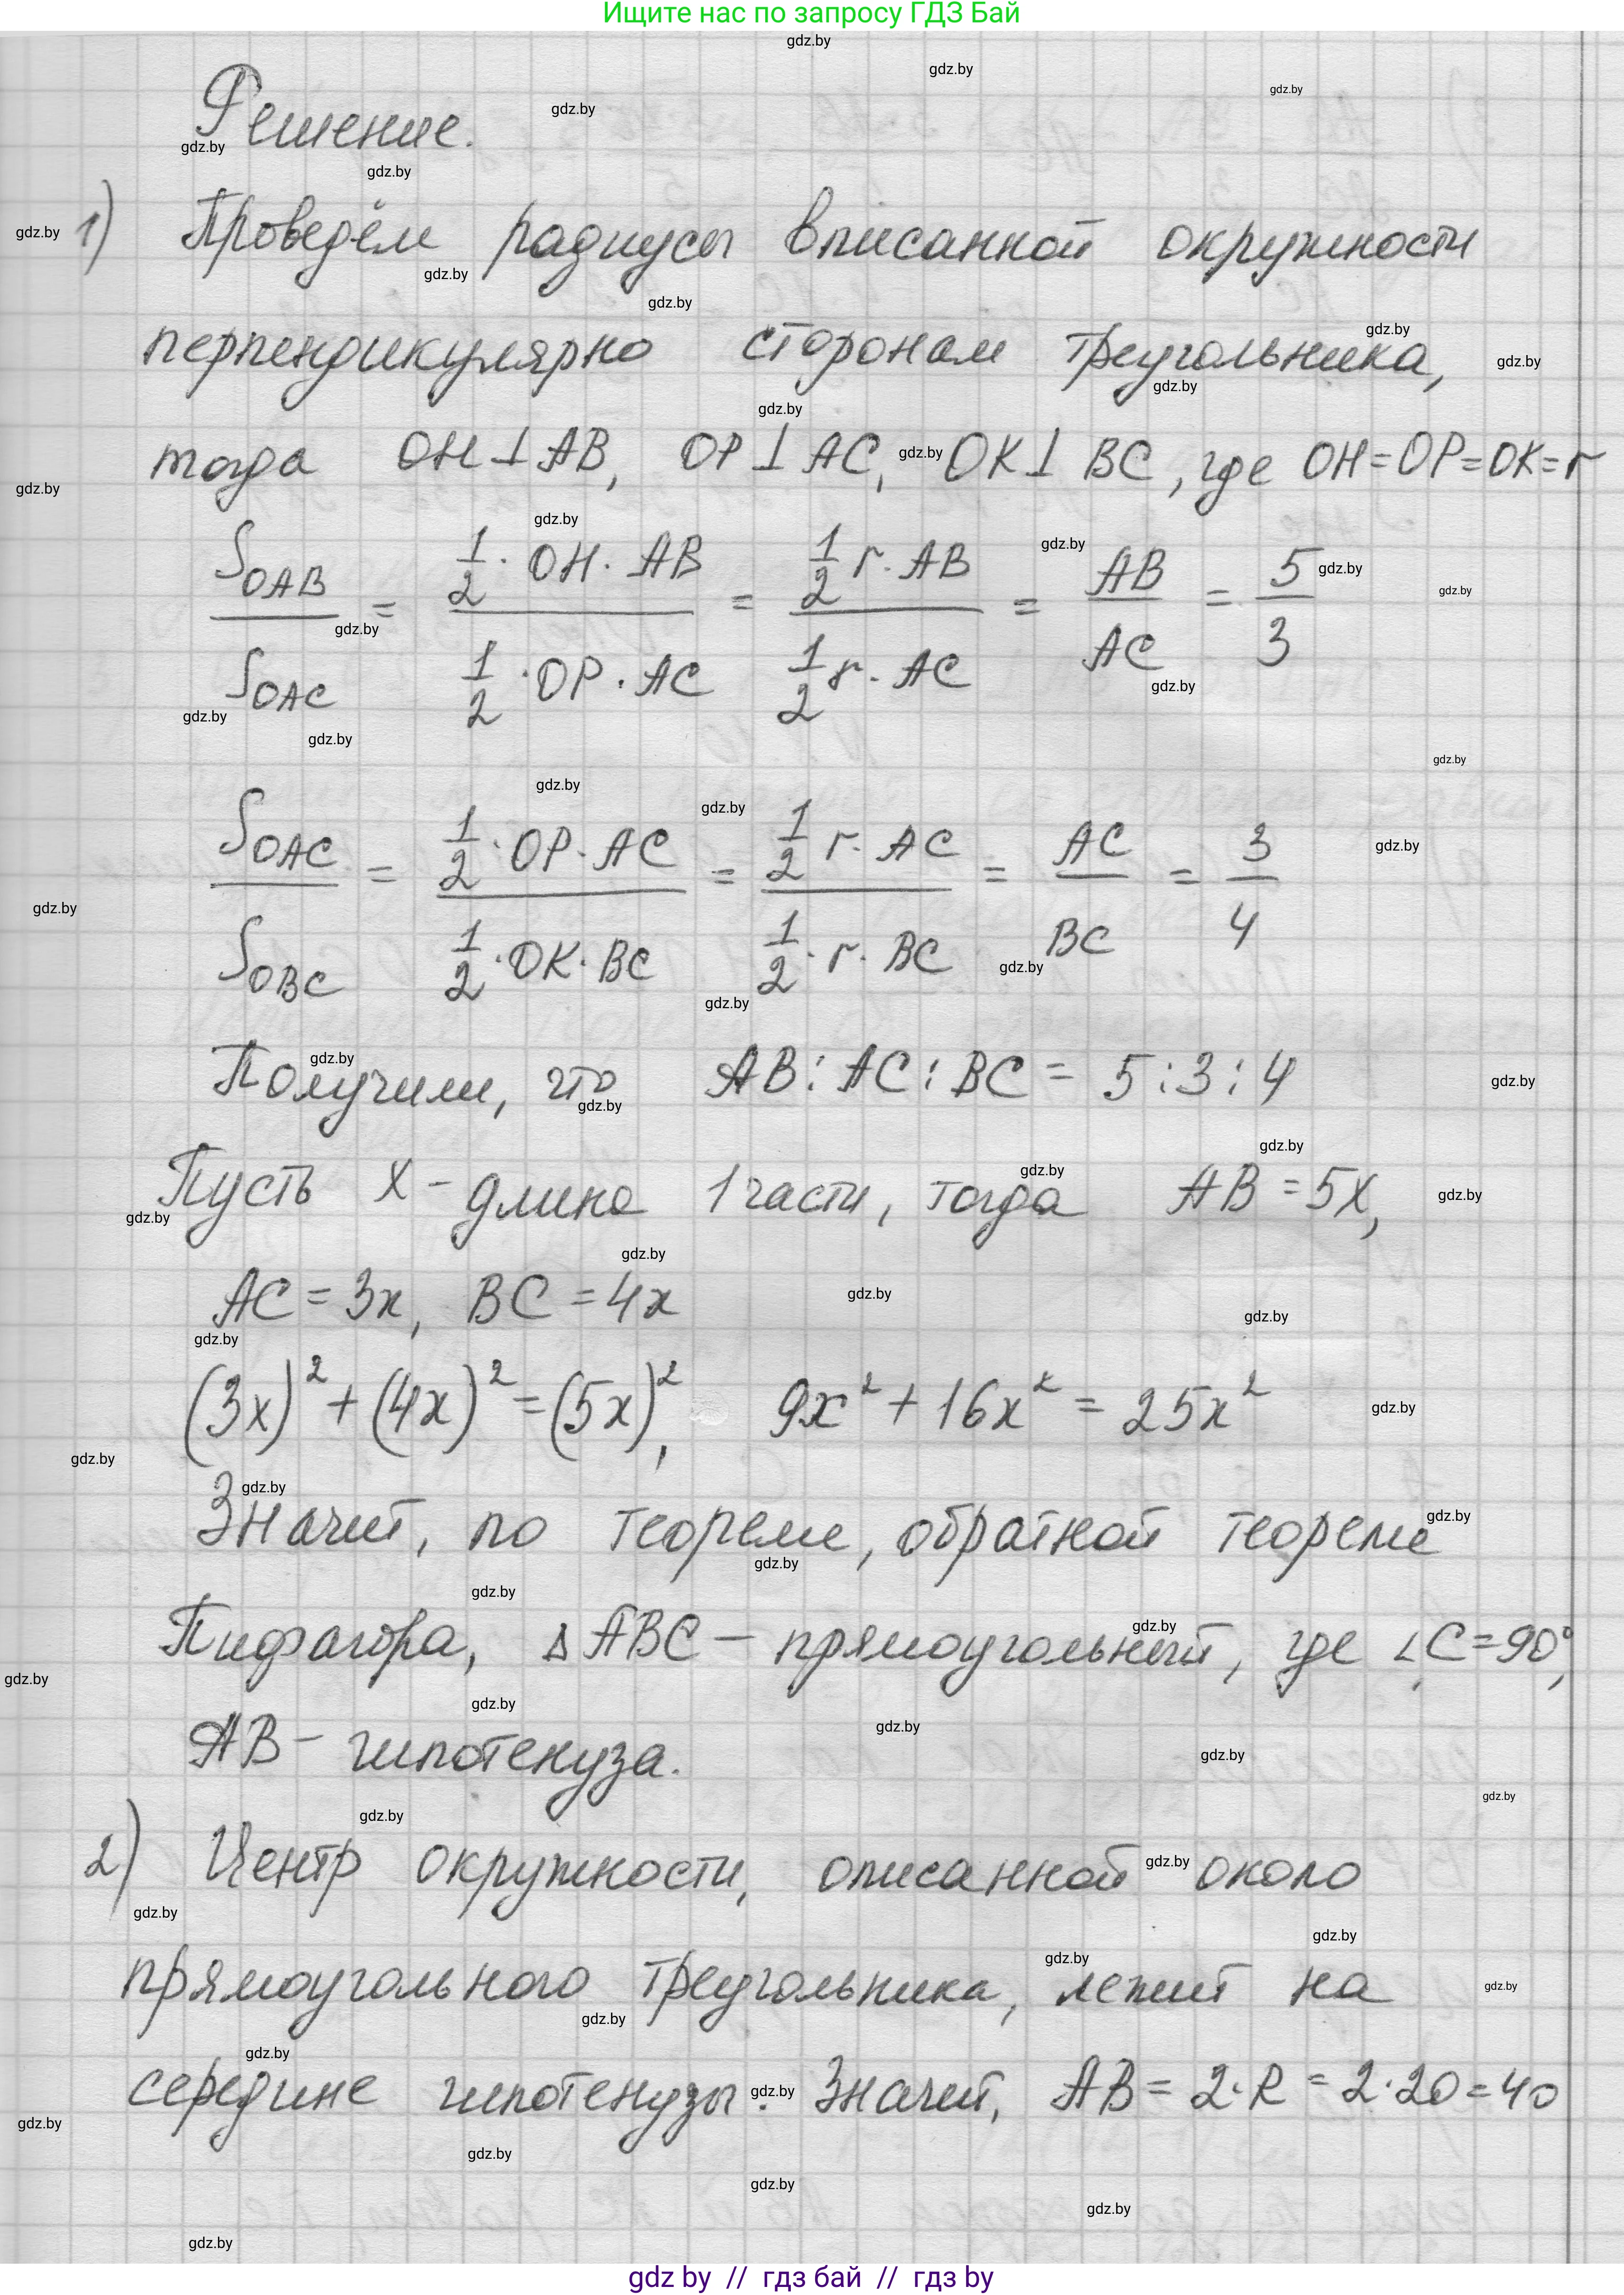 Ищите нас по запросу ГДЗ Бай
Решение.
1) Проведём радиусы вписанной окружности
перпендикулярно сторонам треугольника,
тогда OH⊥AB, OP⊥AC, OK⊥BC, где OH=OP=OK=r
S_OAB / S_OAC = (1/2 · OH · AB) / (1/2 · OP · AC) = (1/2 r · AB) / (1/2 r · AC) = AB / AC = 5 / 3
S_OAC / S_OBC = (1/2 · OP · AC) / (1/2 · OK · BC) = (1/2 r · AC) / (1/2 · r · BC) = AC / BC = 3 / 4
Получили, что AB : AC : BC = 5 : 3 : 4
Пусть x - длина 1 части, тогда AB = 5x,
AC = 3x, BC = 4x
(3x)² + (4x)² = (5x)², 9x² + 16x² = 25x²
Значит, по теореме, обратной теореме
Пифагора, △ABC — прямоугольный, где ∠C=90°,
AB — гипотенуза.
2) Центр окружности, описанной около
прямоугольного треугольника, лежит на
середине гипотенузы. Значит, AB = 2·R = 2·20 = 40
gdz by // гдз бай // гдз by